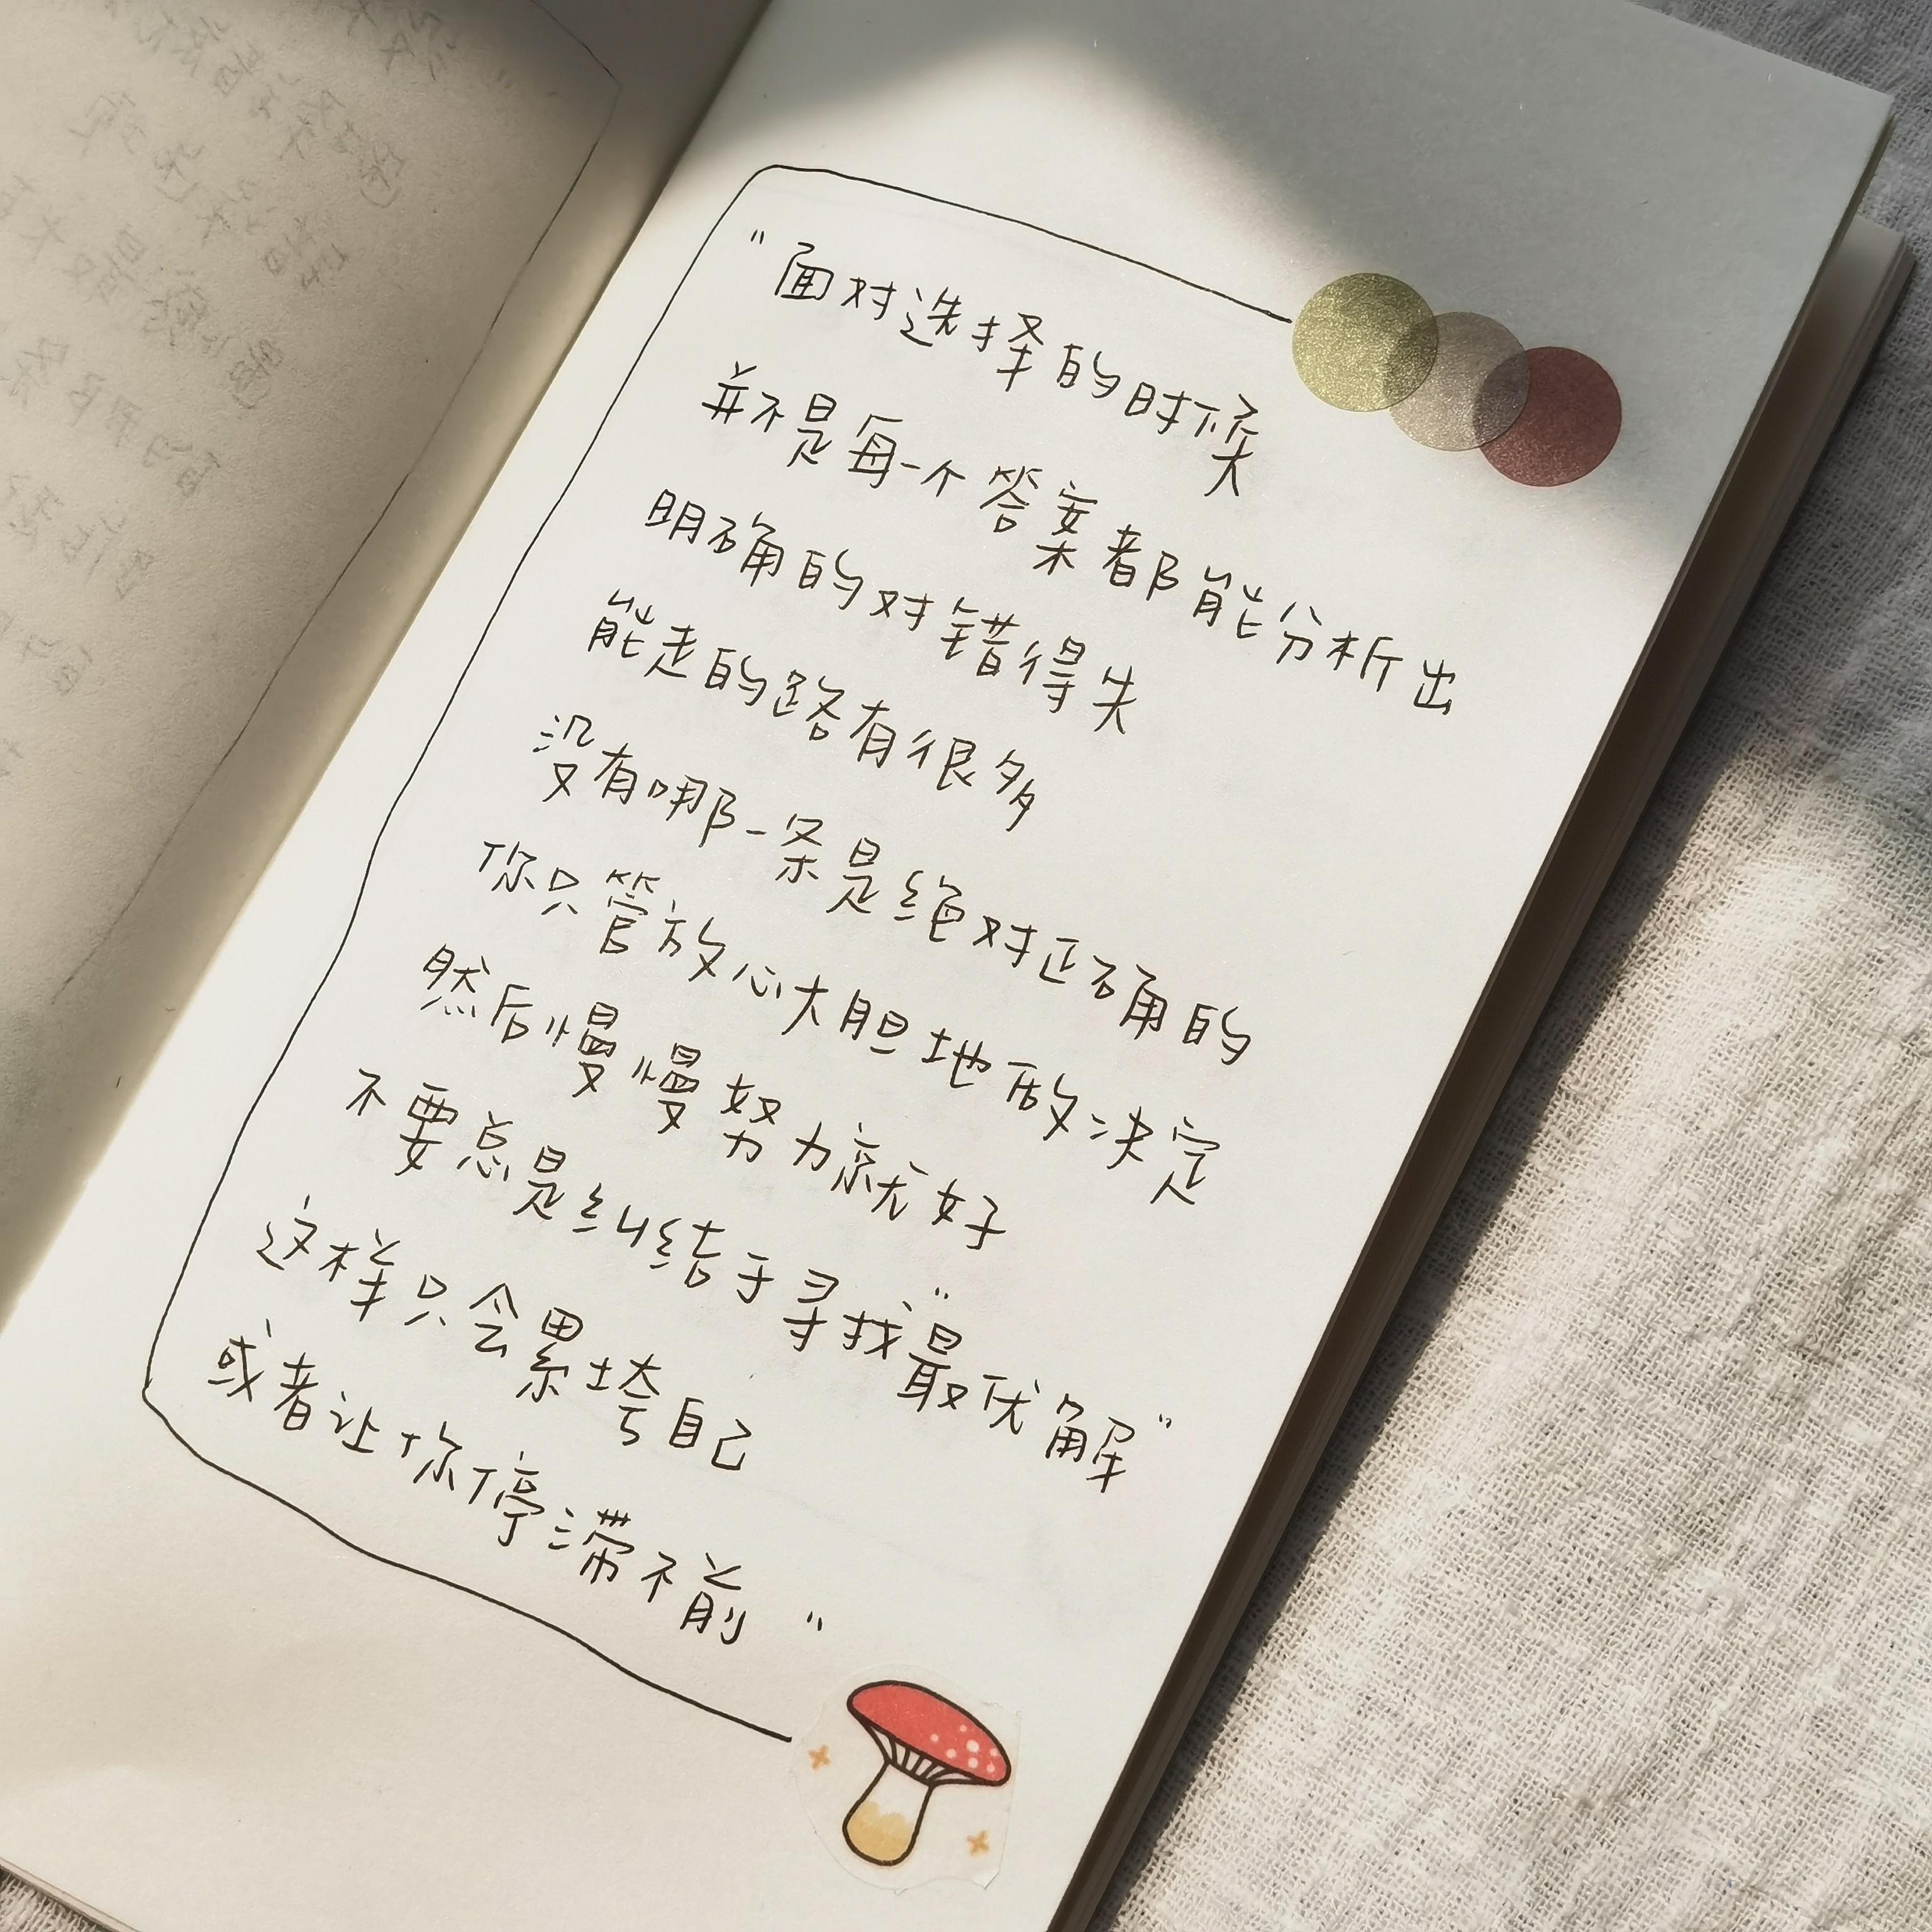 "面对选择的时候
并不是每一个答案都能分析出
明确的对错得失
能走的路有很多
没有哪一条是绝对正确的
你只管放心大胆地做决定
然后慢慢努力就好
不要总是纠结于寻找"最优解"
这样只会累垮自己
或者让你停滞不前"